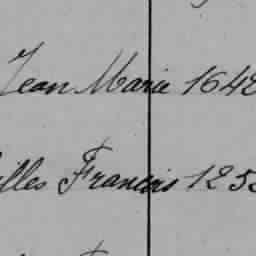 Jean Marie 1642
illes Francois 125